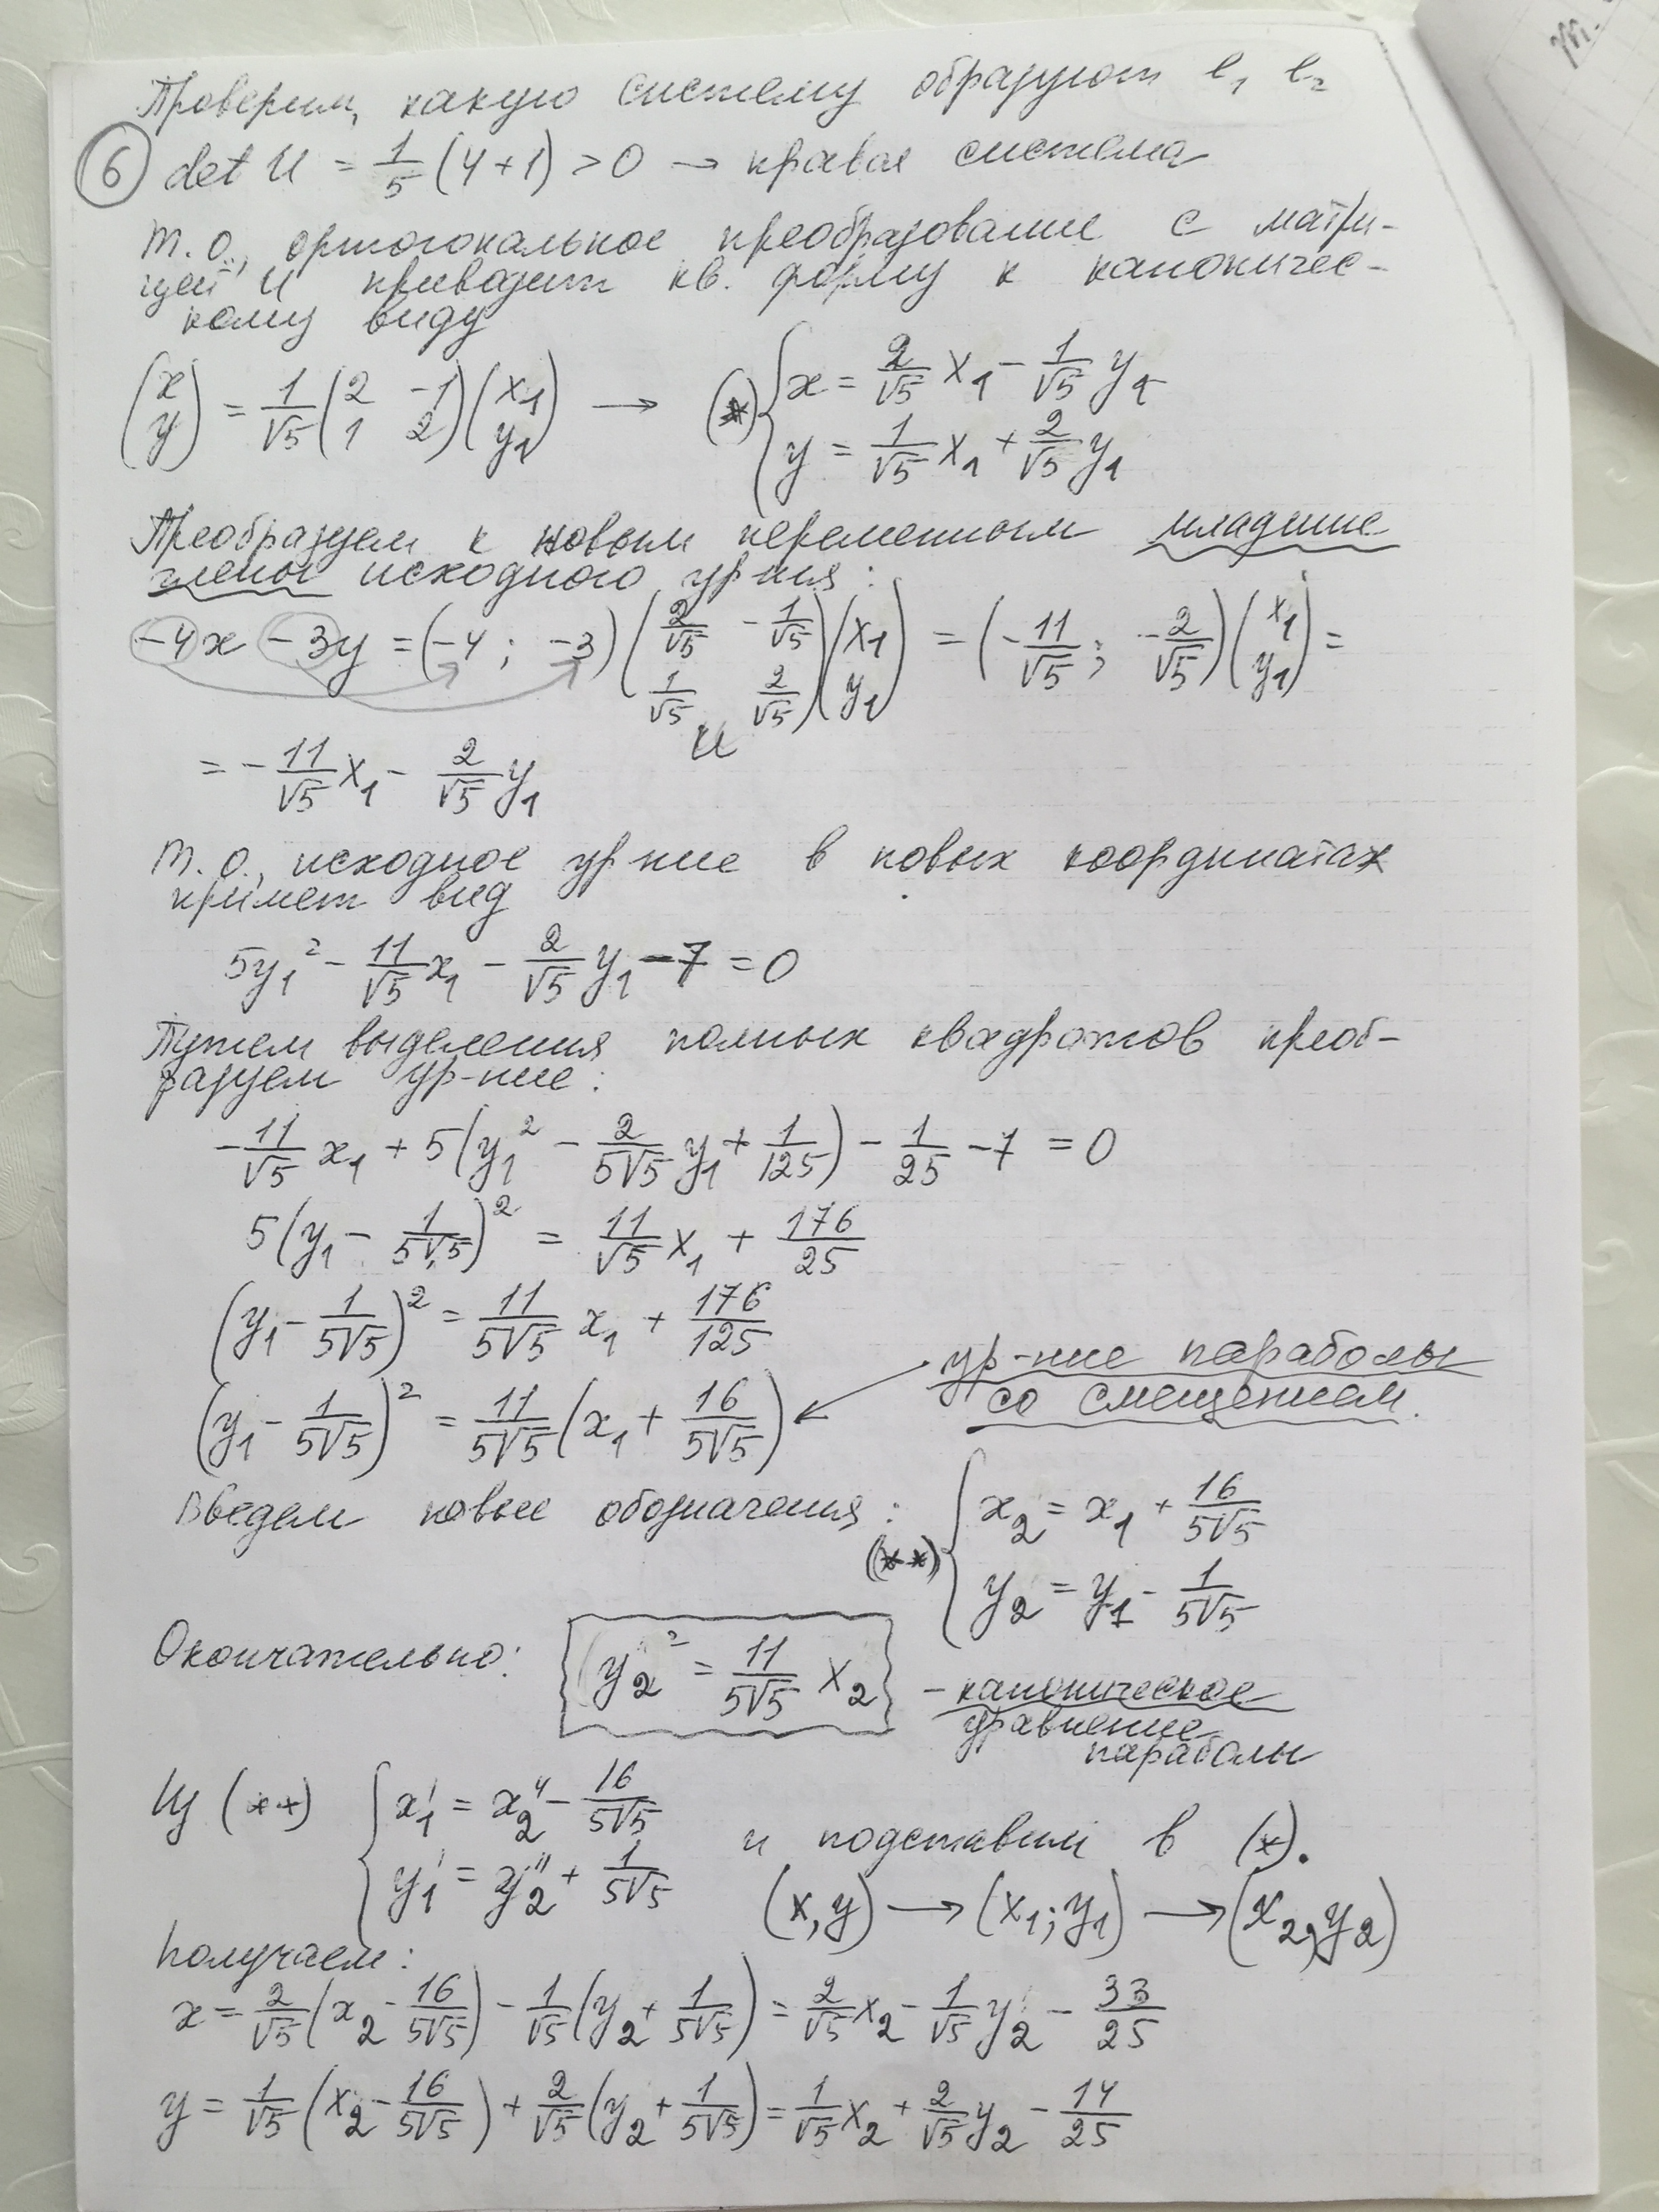 Проверим, какую систему образуют e₁ e₂
⑥ det U = 1/5 (4+1) > 0 → правая система
Т.О., ортогональное преобразование с матри-
цей U приводит кв. форму к каноничес-
кому виду
(x y) = 1/√5 (2 -1 1 2)(x₁ y₁) → (*) { x = 2/√5 x₁ - 1/√5 y₁
y = 1/√5 x₁ + 2/√5 y₁
Преобразуем к новым переменным младшие
члены исходного ур-ния:
-4x - 3y = (-4; -3) (2/√5 -1/√5 1/√5 2/√5)(x₁ y₁) = (-11/√5; -2/√5)(x₁ y₁) =
U
= -11/√5 x₁ - 2/√5 y₁
Т.О., исходное ур-ние в новых координатах
примет вид
5y₁² - 11/√5 x₁ - 2/√5 y₁ - 7 = 0
Путем выделения полных квадратов преоб-
разуем ур-ние:
-11/√5 x₁ + 5(y₁² - 2/5√5 y₁ + 1/125) - 1/25 - 7 = 0
5(y₁ - 1/5√5)² = 11/√5 x₁ + 176/25
(y₁ - 1/5√5)² = 11/5√5 x₁ + 176/125
ур-ние параболы
со смещением.
(y₁ - 1/5√5)² = 11/5√5 (x₁ + 16/5√5) ←
Введем новые обозначения: (**) { x₂ = x₁ + 16/5√5
y₂ = y₁ - 1/5√5
Окончательно: y₂² = 11/5√5 x₂ - каноническое
уравнение
параболы
Из (**) { x₁' = x₂'' - 16/5√5
y₁' = y₂'' + 1/5√5
и подставим в (*).
(x,y) → (x₁; y₁) → (x₂, y₂)
Получаем:
x = 2/√5 (x₂ - 16/5√5) - 1/√5 (y₂ + 1/5√5) = 2/√5 x₂ - 1/√5 y₂ - 33/25
y = 1/√5 (x₂ - 16/5√5) + 2/√5 (y₂ + 1/5√5) = 1/√5 x₂ + 2/√5 y₂ - 14/25